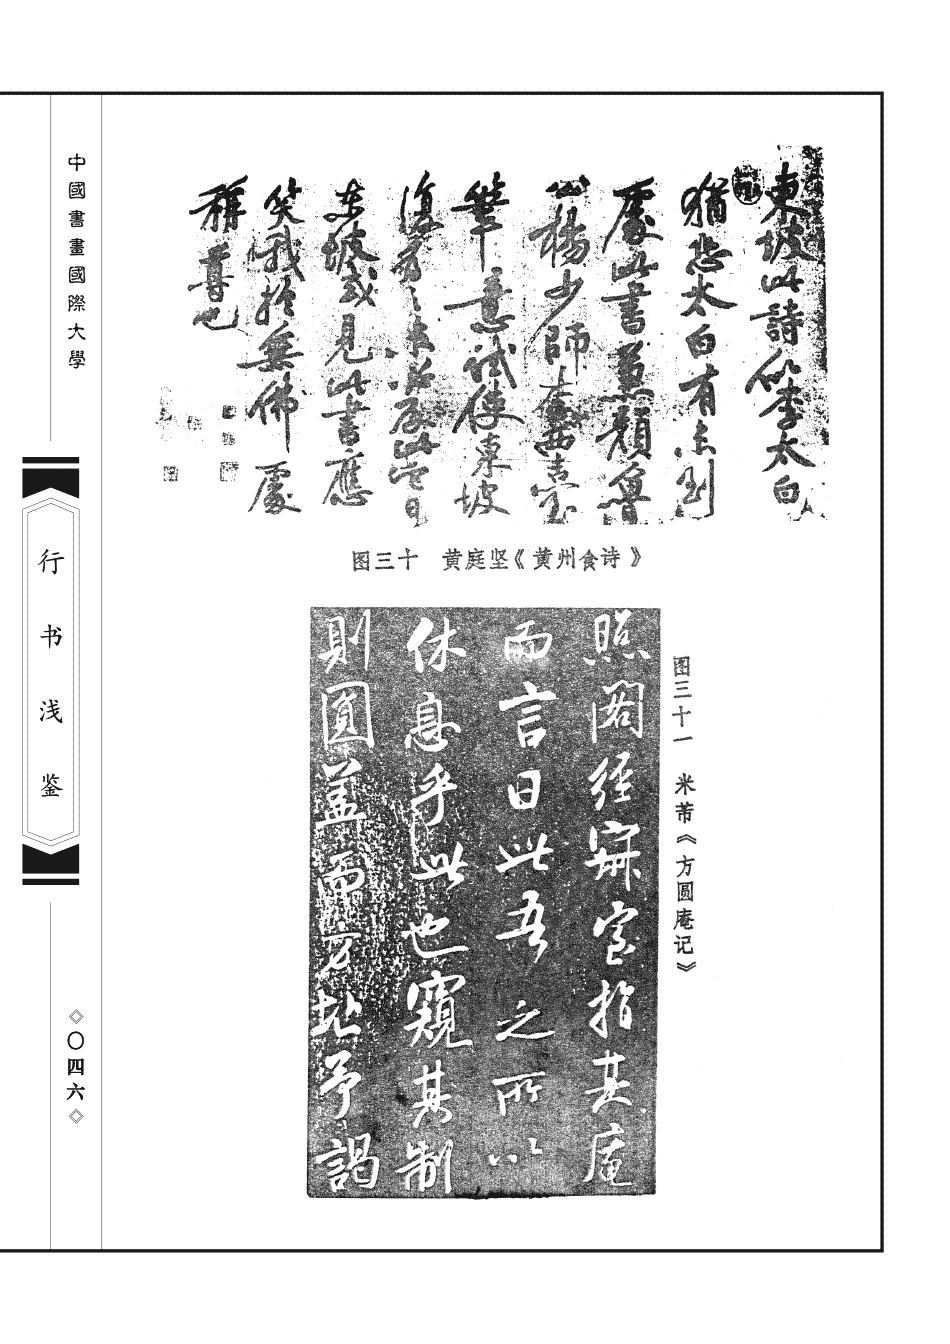 中國書畫國際大學
行书浅鉴
◇〇四六◇
東坡此詩似李太白
猶恐太白有未到
處此書兼顏魯
公楊少師李西臺
筆意試使東坡
復為之未必及此它日
東坡或見此書應
笑我於無佛處
稱尊也
图三十 黄庭坚《黄州食诗》
照閣經寢室指其庵
而言曰此吾之所以
休息乎此也窺其制
則圓蓋而方址予謁
图三十一 米芾《方圆庵记》